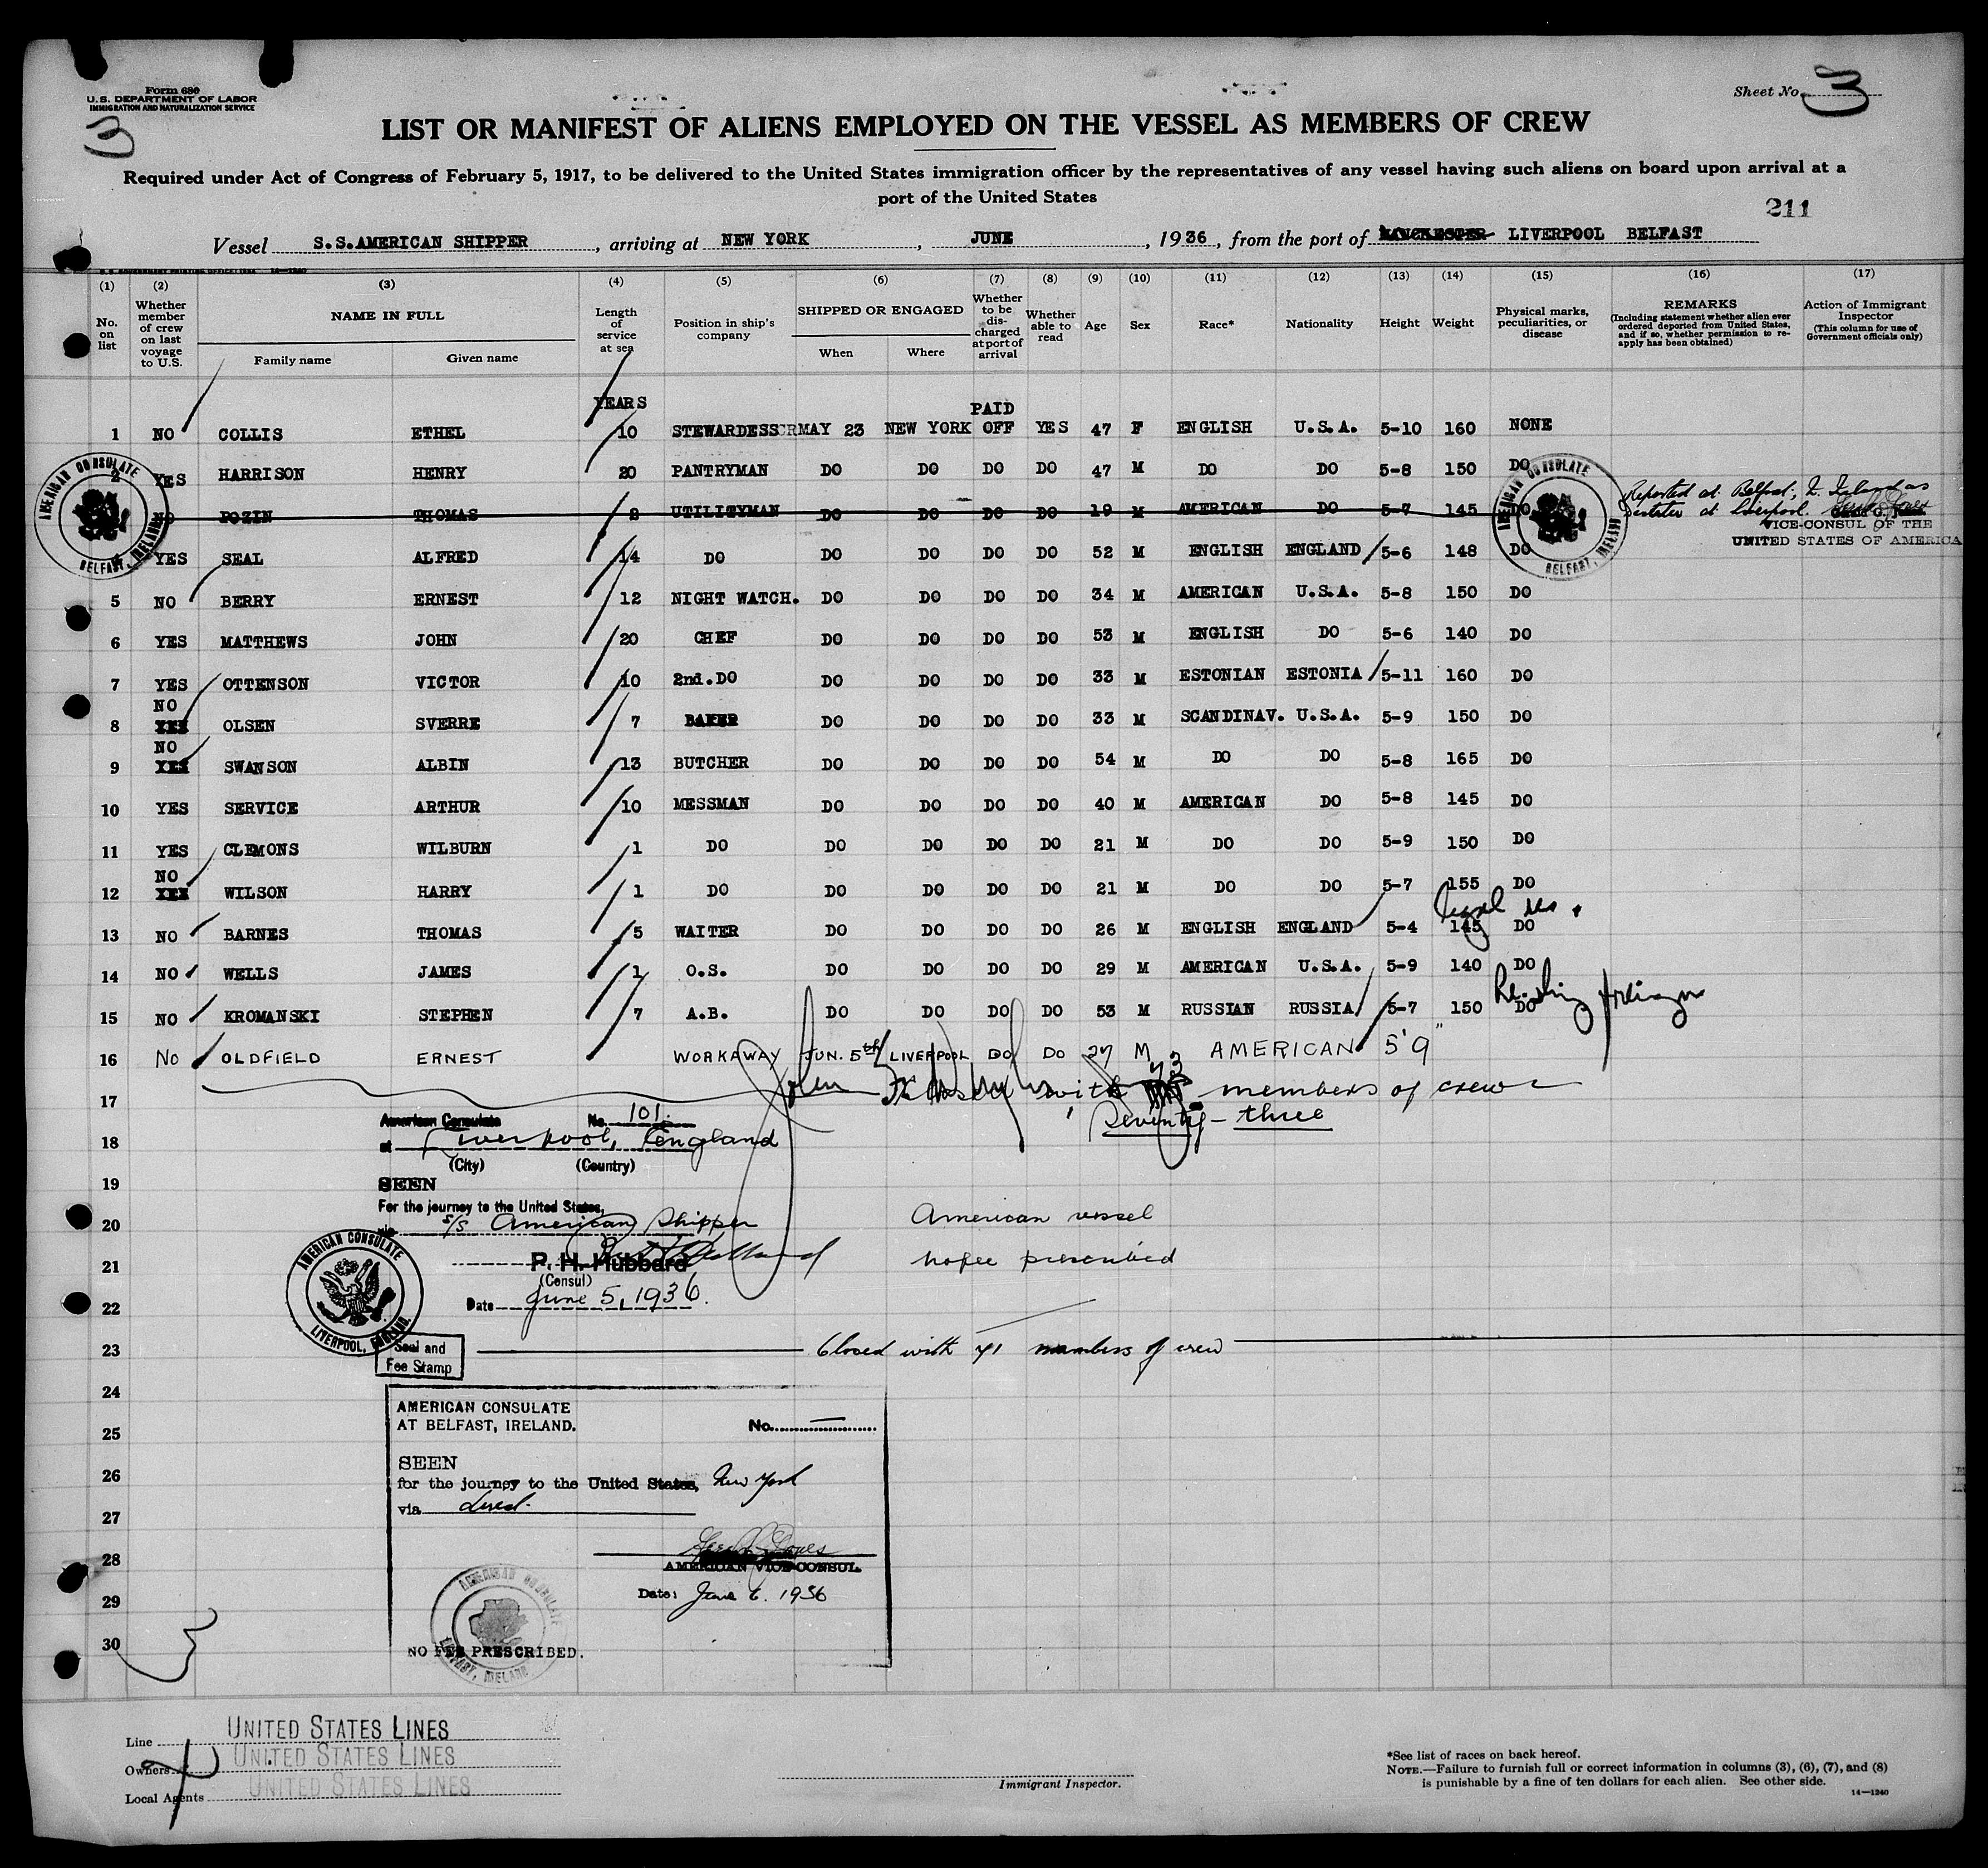 Form 680
U. S. DEPARTMENT OF LABOR
IMMIGRATION AND NATURALIZATION SERVICE
3
Sheet No. 3
LIST OR MANIFEST OF ALIENS EMPLOYED ON THE VESSEL AS MEMBERS OF CREW
Required under Act of Congress of February 5, 1917, to be delivered to the United States immigration officer by the representatives of any vessel having such aliens on board upon arrival at a
port of the United States
211
Vessel S.S.AMERICAN SHIPPER, arriving at NEW YORK, JUNE, 1936, from the port of MANCHESTER LIVERPOOL BELFAST
(1) (2) (3) (4) (5) (6) (7) (8) (9) (10) (11) (12) (13) (14) (15) (16) (17)
No. on list
Whether member of crew on last voyage to U.S.
NAME IN FULL
Family name Given name
Length of service at sea
Position in ship's company
SHIPPED OR ENGAGED
When Where
Whether to be discharged at port of arrival
Whether able to read
Age
Sex
Race*
Nationality
Height
Weight
Physical marks, peculiarities, or disease
REMARKS
(Including statement whether alien ever ordered deported from United States, and if so, whether permission to reapply has been obtained)
Action of Immigrant Inspector
(This column for use of Government officials only)
YEARS PAID
1 NO COLLIS ETHEL 10 STEWARDESS MAY 23 NEW YORK OFF YES 47 F ENGLISH U.S.A. 5-10 160 NONE
2 YES HARRISON HENRY 20 PANTRYMAN DO DO DO DO 47 M DO DO 5-8 150 DO
POZIN THOMAS 2 UTILITYMAN DO DO DO DO 19 M AMERICAN DO 5-7 145 DO
Reported at Belfast, N. Ireland as
Deserter at Liverpool.
VICE-CONSUL OF THE
UNITED STATES OF AMERICA
4 YES SEAL ALFRED 14 DO DO DO DO DO 52 M ENGLISH ENGLAND 5-6 148 DO
5 NO BERRY ERNEST 12 NIGHT WATCH. DO DO DO DO 34 M AMERICAN U.S.A. 5-8 150 DO
6 YES MATTHEWS JOHN 20 CHEF DO DO DO DO 53 M ENGLISH DO 5-6 140 DO
7 YES OTTENSON VICTOR 10 2nd.DO DO DO DO DO 33 M ESTONIAN ESTONIA 5-11 160 DO
NO
8 YES OLSEN SVERRE 7 BAKER DO DO DO DO 33 M SCANDINAV. U.S.A. 5-9 150 DO
NO
9 YES SWANSON ALBIN 13 BUTCHER DO DO DO DO 54 M DO DO 5-8 165 DO
10 YES SERVICE ARTHUR 10 MESSMAN DO DO DO DO 40 M AMERICAN DO 5-8 145 DO
11 YES CLEMONS WILBURN 1 DO DO DO DO DO 21 M DO DO 5-9 150 DO
NO
12 YES WILSON HARRY 1 DO DO DO DO DO 21 M DO DO 5-7 155 DO
Legal res.
13 NO BARNES THOMAS 5 WAITER DO DO DO DO 26 M ENGLISH ENGLAND 5-4 145 DO
14 NO WELLS JAMES 1 O.S. DO DO DO DO 29 M AMERICAN U.S.A. 5-9 140 DO
15 NO KROMANSKI STEPHEN 7 A.B. DO DO DO DO 53 M RUSSIAN RUSSIA 5-7 150 DO
16 No OLDFIELD ERNEST WORKAWAY JUN. 5th LIVERPOOL DO DO 27 M AMERICAN 5'9"
17 with 73 members of crew
Seventy-three
American Consulate No. 101
18 at Liverpool, England
(City) (Country)
19 SEEN
For the journey to the United States,
20 via s/s American Shipper
American vessel
21 P. H. Hubbard
(Consul)
nofee prescribed
22 Date June 5, 1936.
AMERICAN CONSULATE
LIVERPOOL, ENGLAND.
23 Seal and
Fee Stamp
Closed with 71 members of crew
24
AMERICAN CONSULATE
25 AT BELFAST, IRELAND. No.
26 SEEN
for the journey to the United States, New York
27 via direct.
28
AMERICAN VICE CONSUL.
29 Date: June 6. 1936
30 NO FEE PRESCRIBED.
AMERICAN CONSULATE
BELFAST, IRELAND
AMERICAN CONSULATE
BELFAST, IRELAND
AMERICAN CONSULATE
BELFAST, IRELAND
Line UNITED STATES LINES
Owners UNITED STATES LINES
Local Agents UNITED STATES LINES
Immigrant Inspector.
*See list of races on back hereof.
NOTE.—Failure to furnish full or correct information in columns (3), (6), (7), and (8)
is punishable by a fine of ten dollars for each alien. See other side.
14—1240